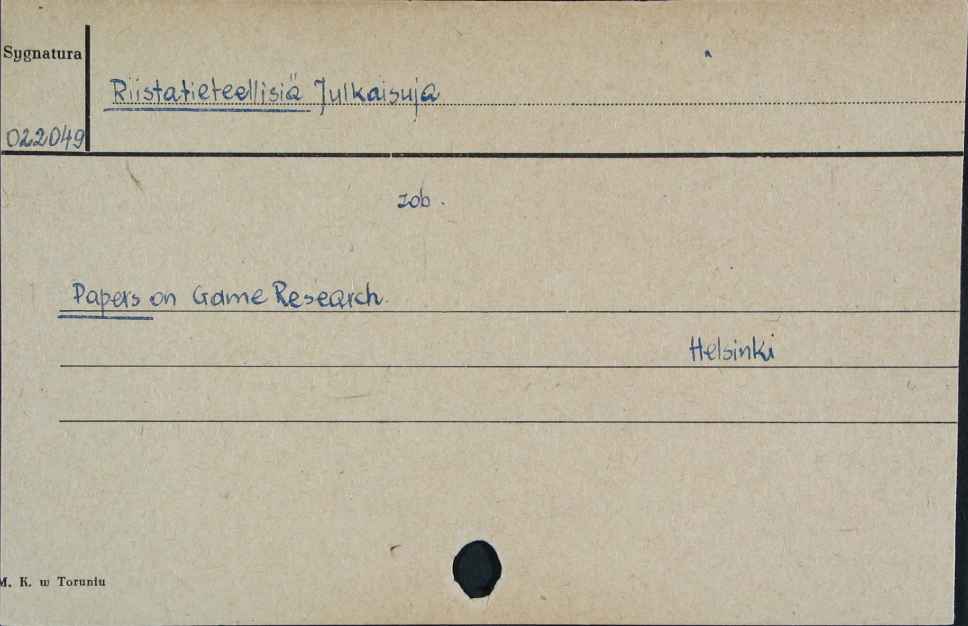 Sygnatura
Riistatieteellisiä Julkaisuja
022049
zob.
Papers on Game Research
Helsinki
M. K. w Toruniu